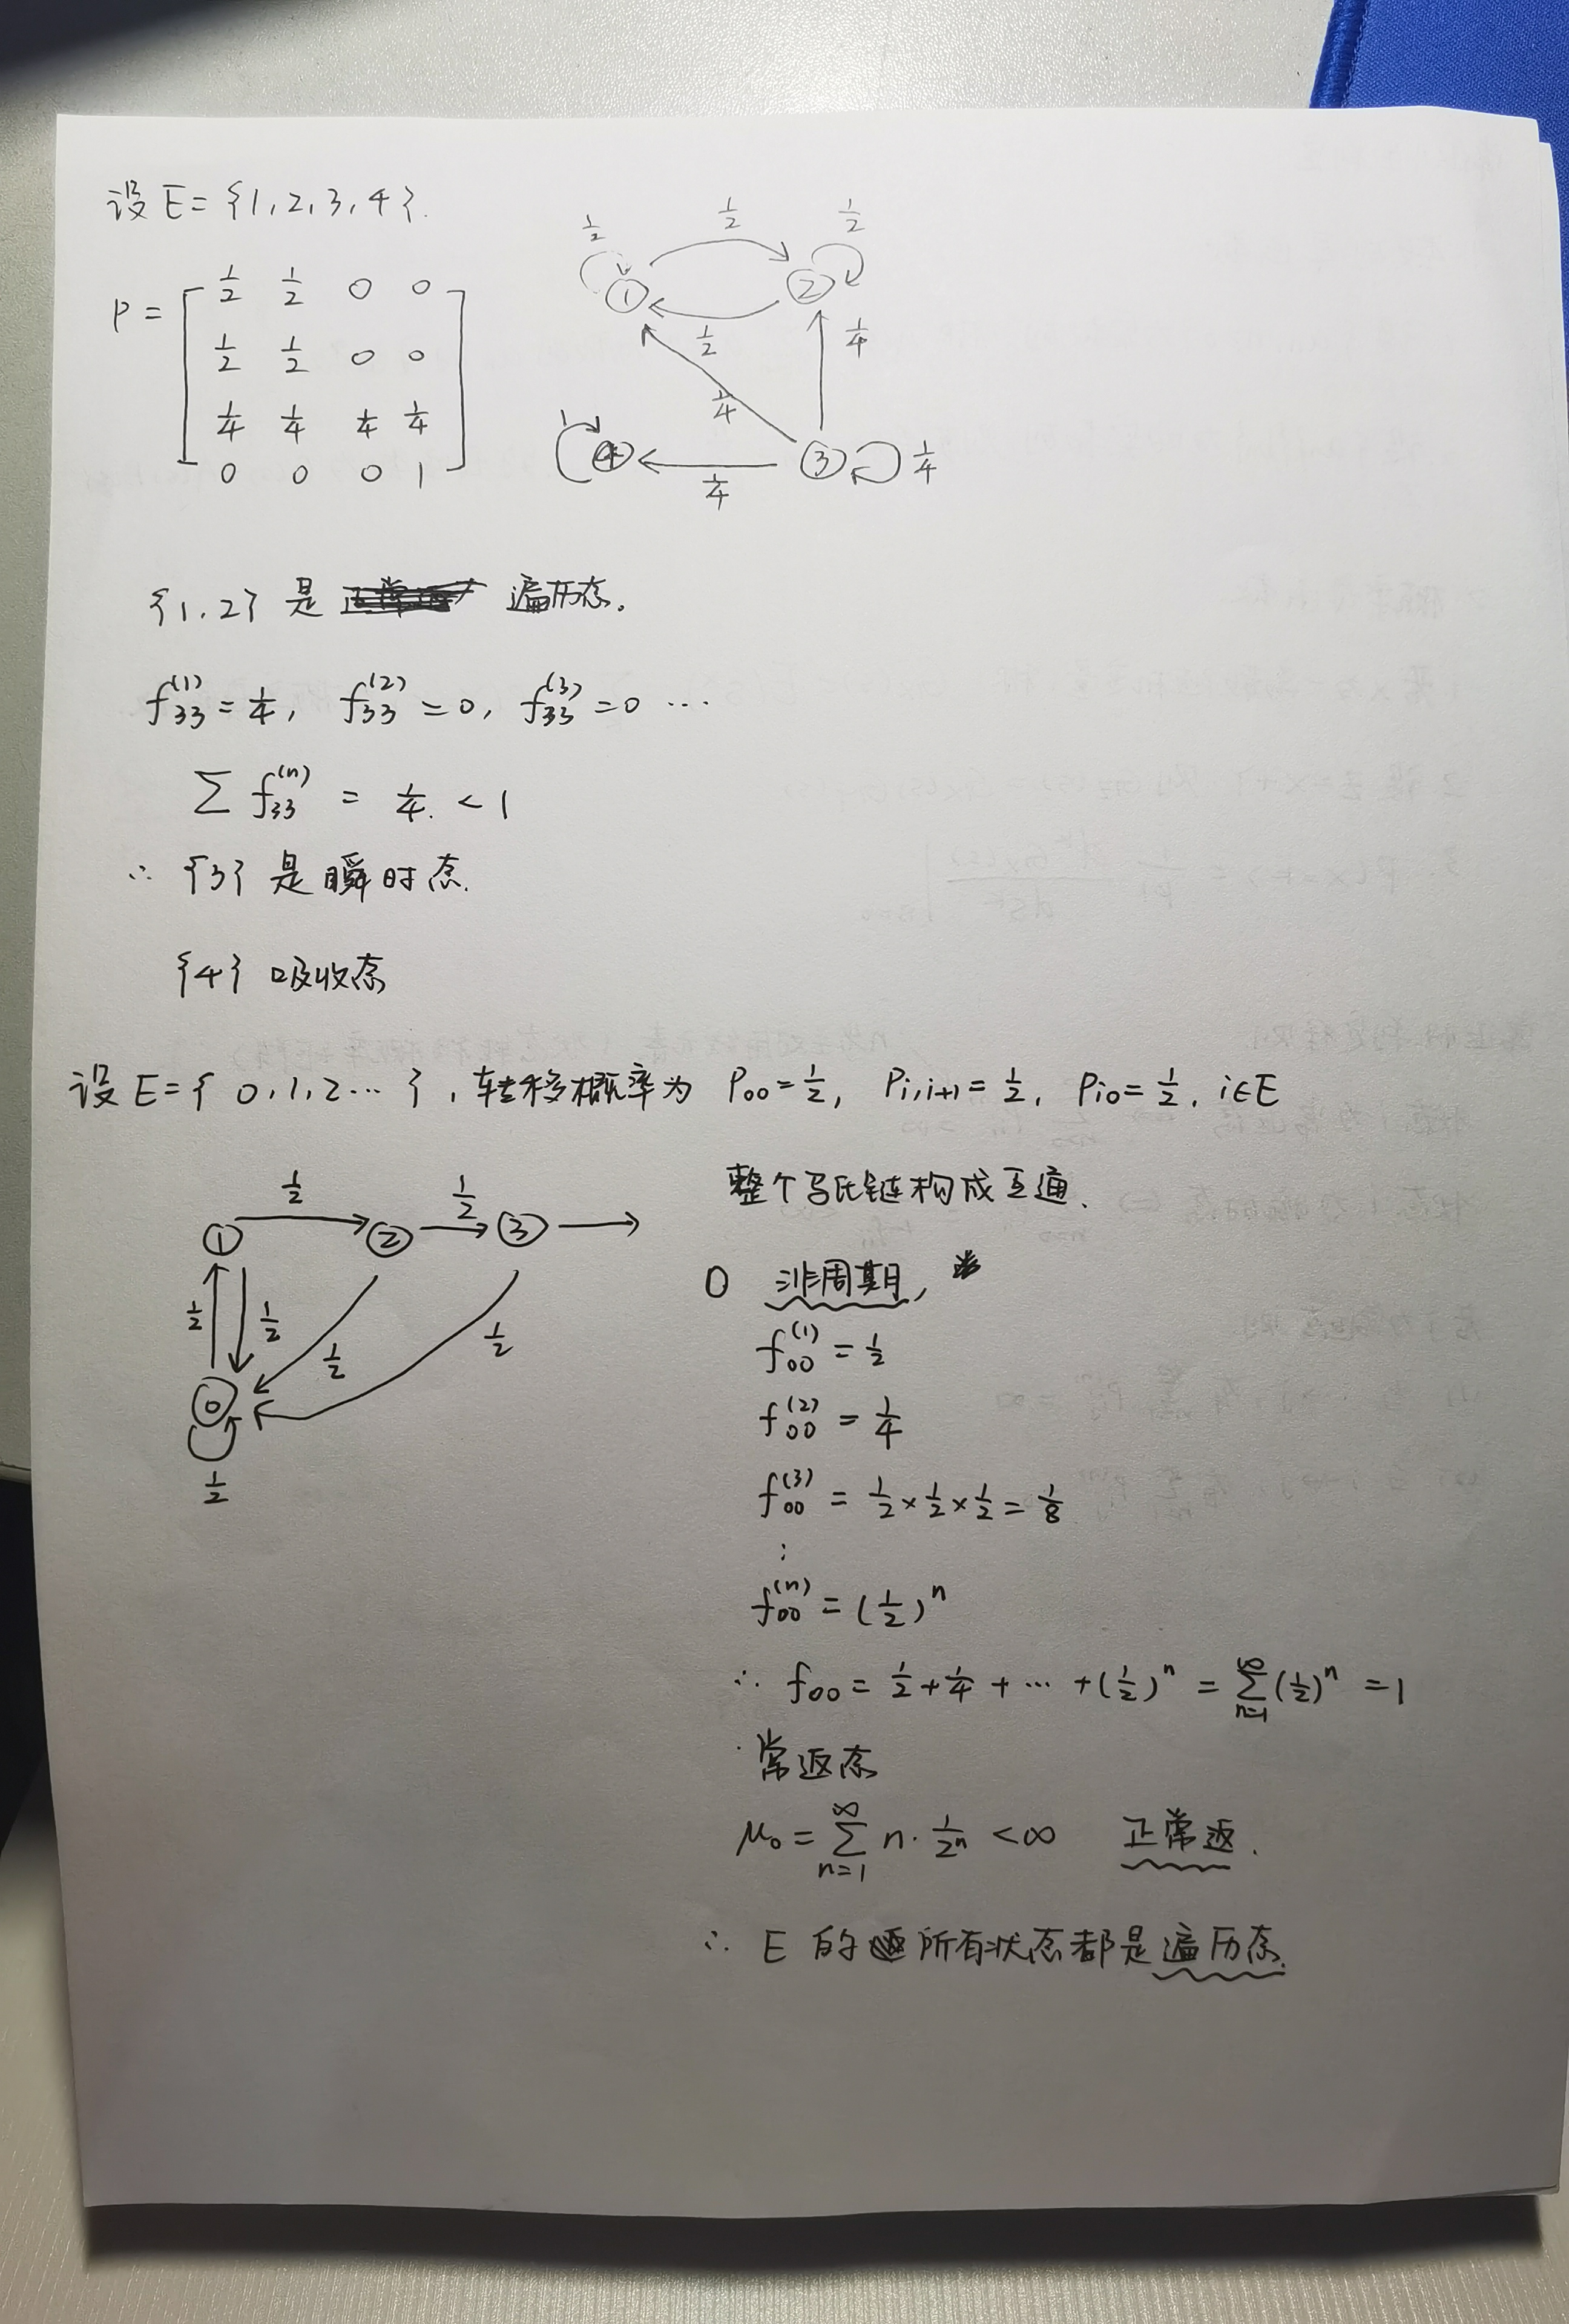 设 E = {1, 2, 3, 4}.
P = [ 1/2 1/2 0 0
1/2 1/2 0 0
1/4 1/4 1/4 1/4
0 0 0 1 ]
1/2 1/2 1/2
① ②
1/2 1/4
1/4
1 ④ ③ 1/4
1/4
{1, 2} 是 遍历态.
f₃₃⁽¹⁾ = 1/4, f₃₃⁽²⁾ = 0, f₃₃⁽³⁾ = 0 ⋯
∑ f₃₃⁽ⁿ⁾ = 1/4 < 1
∴ {3} 是瞬时态.
{4} 吸收态
设 E = { 0, 1, 2 ⋯ }, 转移概率为 P₀₀ = 1/2, Pi,i+1 = 1/2, Pi0 = 1/2, i∈E
1/2 1/2
① ② ③
1/2 1/2 1/2 1/2
⓪
1/2
整个马氏链构成互通.
0 非周期,
f₀₀⁽¹⁾ = 1/2
f₀₀⁽²⁾ = 1/4
f₀₀⁽³⁾ = 1/2 × 1/2 × 1/2 = 1/8
⋮
f₀₀⁽ⁿ⁾ = (1/2)ⁿ
∴ f₀₀ = 1/2 + 1/4 + ⋯ + (1/2)ⁿ = ∑_{n=1}^{∞} (1/2)ⁿ = 1
常返态
μ₀ = ∑_{n=1}^{∞} n · 1/2ⁿ < ∞ 正常返.
∴ E 的所有状态都是遍历态.